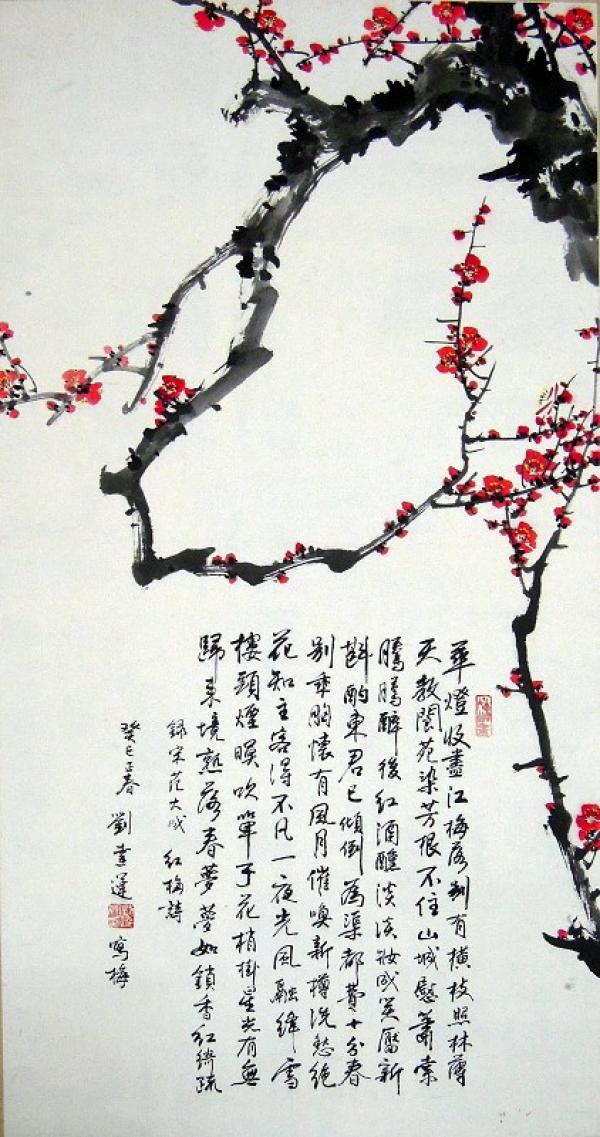 華燈收盡江梅落別有橫枝照林薄
天教閬苑染芳根不住山城慰蕭索
騰騰醉後紅酒醺淡淡妝成笑靨新
斟酌東君已傾倒為渠都費十分春
別乘胸懷有風月催喚新樽洗愁絕
花知主客得不凡一夜光風融絳雪
樓頭煙暝吹單于花梢掛星光有無
歸來境熟落春夢夢如鎖香紅綺疏
錄宋范大成 紅梅詩
癸巳孟春 劉 運 寫梅